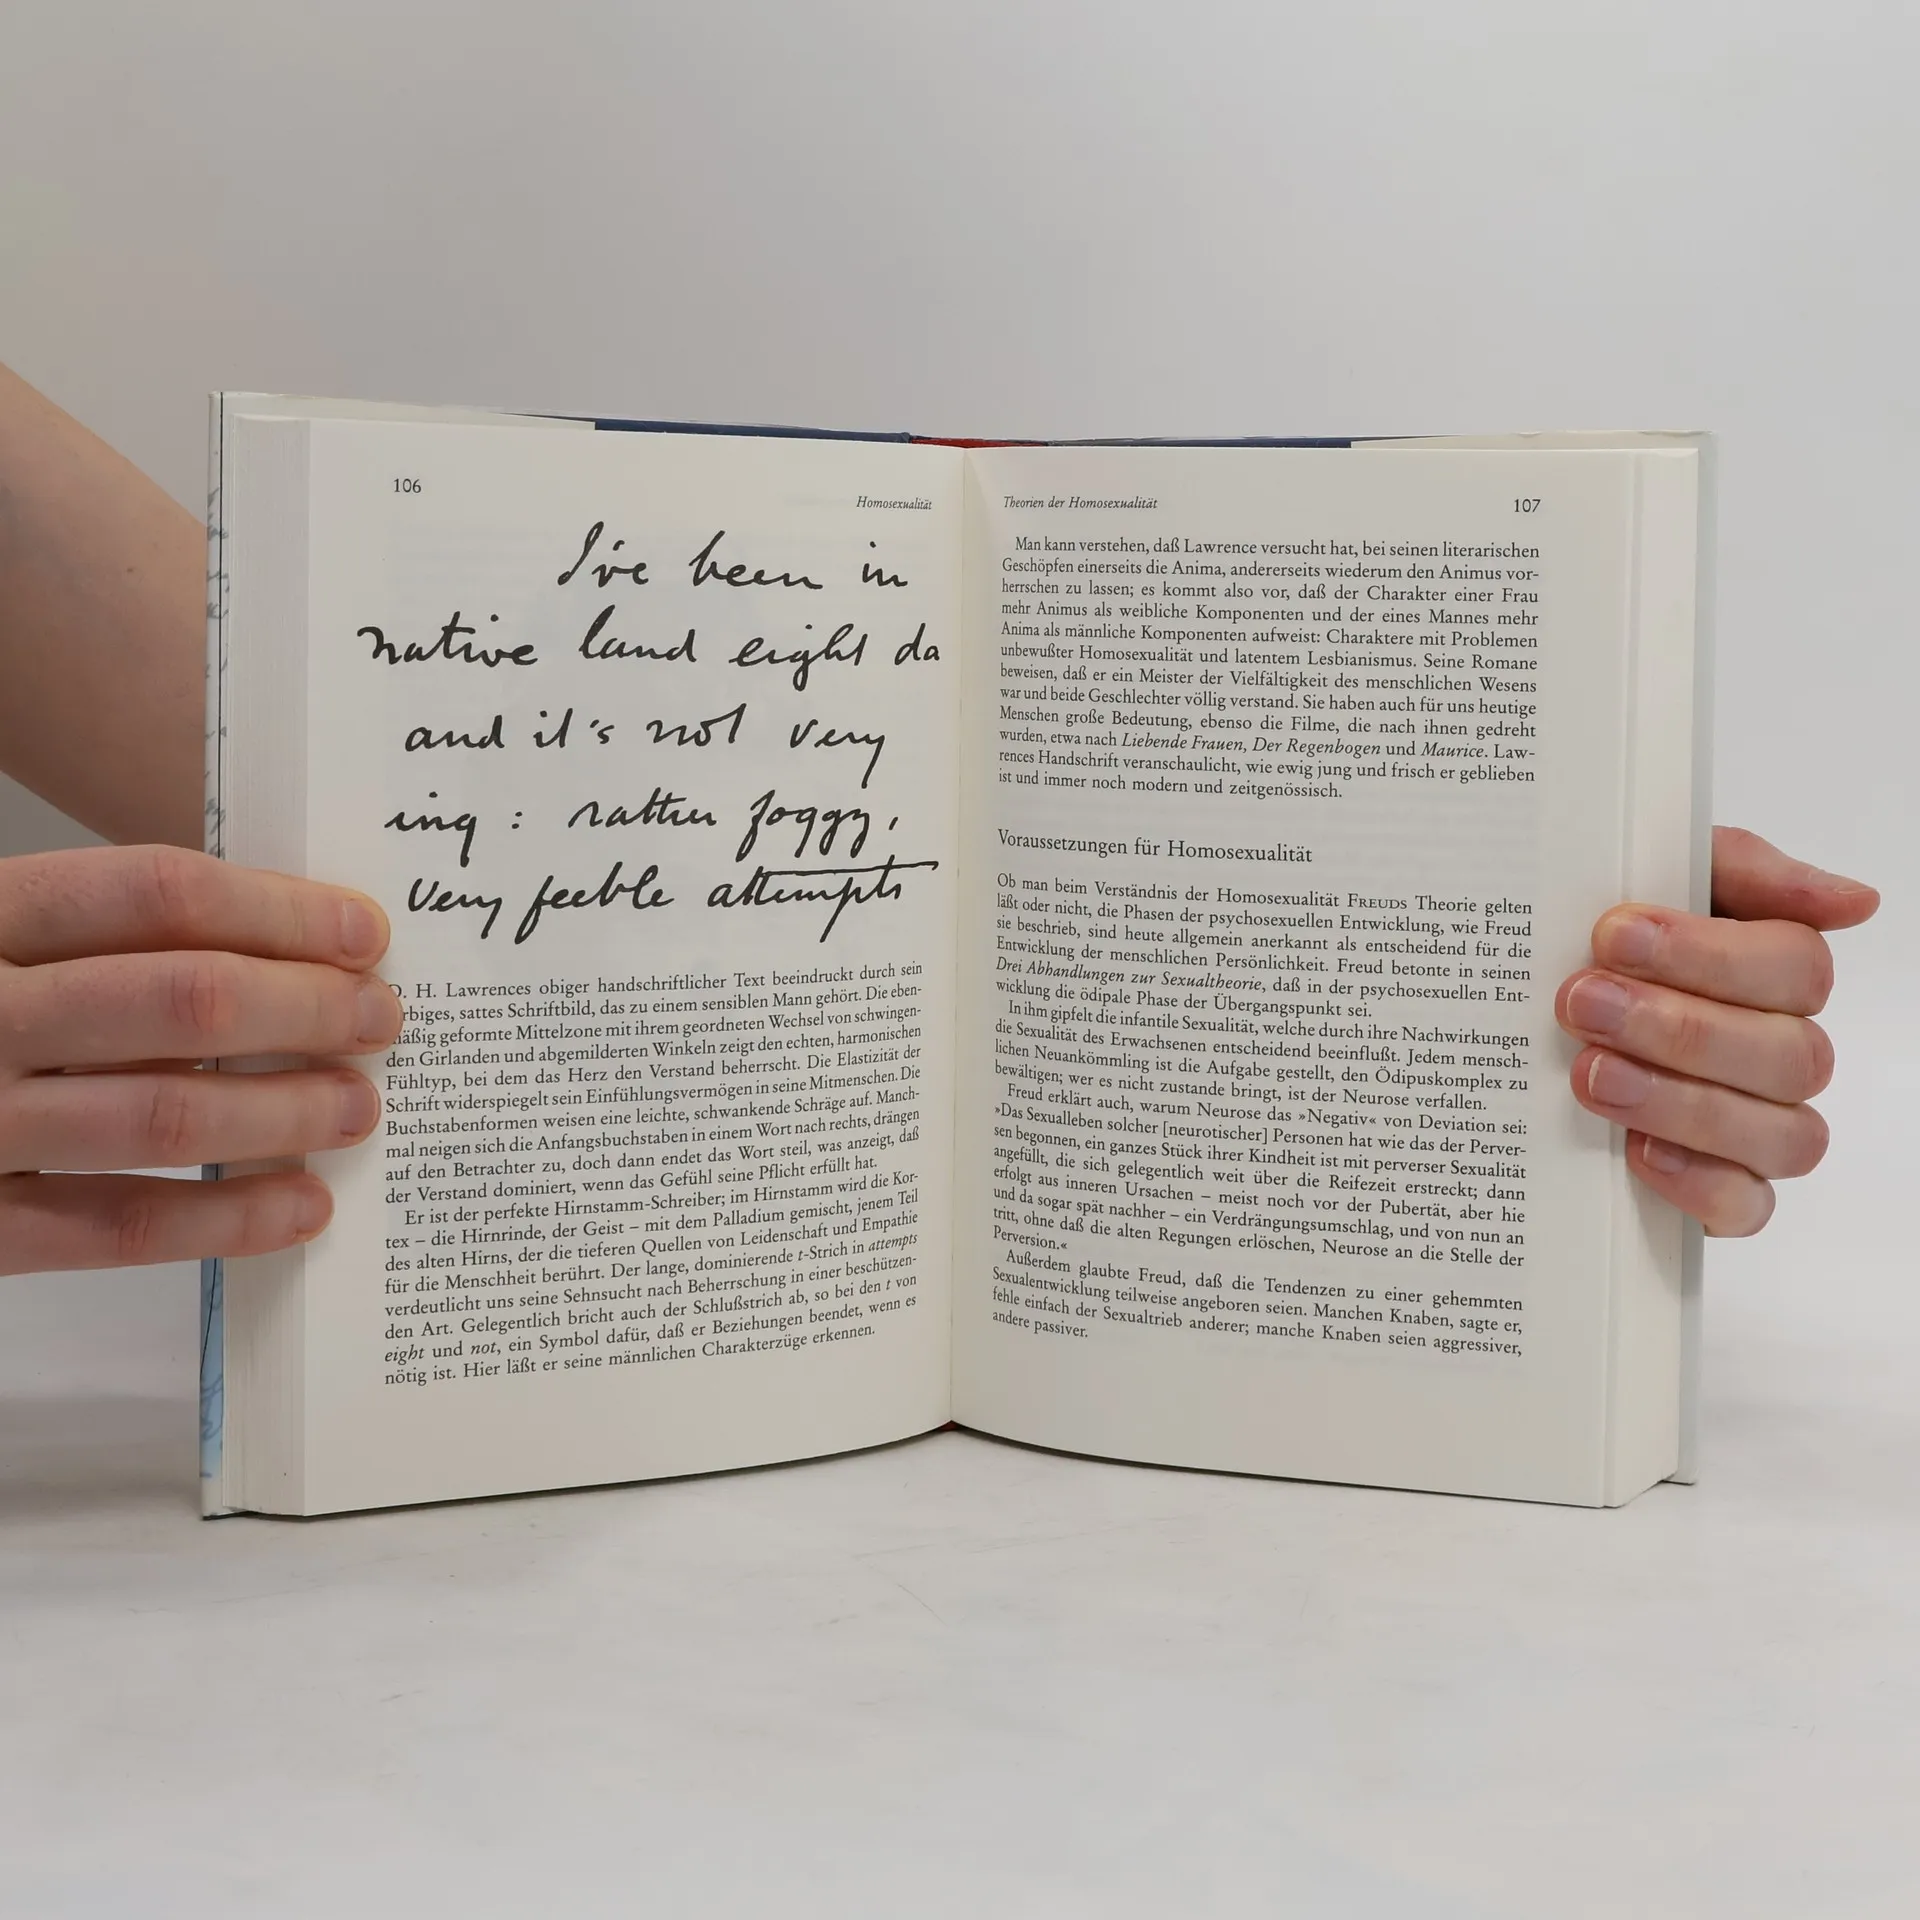 106
Homosexualität
I've been in
native land eight da
and it's not very
ing : rather foggy,
very feeble attempts
D. H. Lawrences obiger handschriftlicher Text beeindruckt durch sein
rbiges, sattes Schriftbild, das zu einem sensiblen Mann gehört. Die eben-
mäßig geformte Mittelzone mit ihrem geordneten Wechsel von schwingen-
den Girlanden und abgemilderten Winkeln zeigt den echten, harmonischen
Fühltyp, bei dem das Herz den Verstand beherrscht. Die Elastizität der
Schrift widerspiegelt sein Einfühlungsvermögen in seine Mitmenschen. Die
Buchstabenformen weisen eine leichte, schwankende Schräge auf. Manch-
mal neigen sich die Anfangsbuchstaben in einem Wort nach rechts, drängen
auf den Betrachter zu, doch dann endet das Wort steil, was anzeigt, daß
der Verstand dominiert, wenn das Gefühl seine Pflicht erfüllt hat.
Er ist der perfekte Hirnstamm-Schreiber; im Hirnstamm wird die Kor-
tex – die Hirnrinde, der Geist – mit dem Palladium gemischt, jenem Teil
des alten Hirns, der die tieferen Quellen von Leidenschaft und Empathie
für die Menschheit berührt. Der lange, dominierende t-Strich in attempts
verdeutlicht uns seine Sehnsucht nach Beherrschung in einer beschützen-
den Art. Gelegentlich bricht auch der Schlußstrich ab, so bei den t von
eight und not, ein Symbol dafür, daß er Beziehungen beendet, wenn es
nötig ist. Hier läßt er seine männlichen Charakterzüge erkennen.
Theorien der Homosexualität
107
Man kann verstehen, daß Lawrence versucht hat, bei seinen literarischen
Geschöpfen einerseits die Anima, andererseits wiederum den Animus vor-
herrschen zu lassen; es kommt also vor, daß der Charakter einer Frau
mehr Animus als weibliche Komponenten und der eines Mannes mehr
Anima als männliche Komponenten aufweist: Charaktere mit Problemen
unbewußter Homosexualität und latentem Lesbianismus. Seine Romane
beweisen, daß er ein Meister der Vielfältigkeit des menschlichen Wesens
war und beide Geschlechter völlig verstand. Sie haben auch für uns heutige
Menschen große Bedeutung, ebenso die Filme, die nach ihnen gedreht
wurden, etwa nach Liebende Frauen, Der Regenbogen und Maurice. Law-
rences Handschrift veranschaulicht, wie ewig jung und frisch er geblieben
ist und immer noch modern und zeitgenössisch.
Voraussetzungen für Homosexualität
Ob man beim Verständnis der Homosexualität FREUDS Theorie gelten
läßt oder nicht, die Phasen der psychosexuellen Entwicklung, wie Freud
sie beschrieb, sind heute allgemein anerkannt als entscheidend für die
Entwicklung der menschlichen Persönlichkeit. Freud betonte in seinen
Drei Abhandlungen zur Sexualtheorie, daß in der psychosexuellen Ent-
wicklung die ödipale Phase der Übergangspunkt sei.
In ihm gipfelt die infantile Sexualität, welche durch ihre Nachwirkungen
die Sexualität des Erwachsenen entscheidend beeinflußt. Jedem mensch-
lichen Neuankömmling ist die Aufgabe gestellt, den Ödipuskomplex zu
bewältigen; wer es nicht zustande bringt, ist der Neurose verfallen.
Freud erklärt auch, warum Neurose das »Negativ« von Deviation sei:
»Das Sexualleben solcher [neurotischer] Personen hat wie das der Perver-
sen begonnen, ein ganzes Stück ihrer Kindheit ist mit perverser Sexualität
angefüllt, die sich gelegentlich weit über die Reifezeit erstreckt; dann
erfolgt aus inneren Ursachen – meist noch vor der Pubertät, aber hie
und da sogar spät nachher – ein Verdrängungsumschlag, und von nun an
tritt, ohne daß die alten Regungen erlöschen, Neurose an die Stelle der
Perversion.«
Außerdem glaubte Freud, daß die Tendenzen zu einer gehemmten
Sexualentwicklung teilweise angeboren seien. Manchen Knaben, sagte er,
fehle einfach der Sexualtrieb anderer; manche Knaben seien aggressiver,
andere passiver.